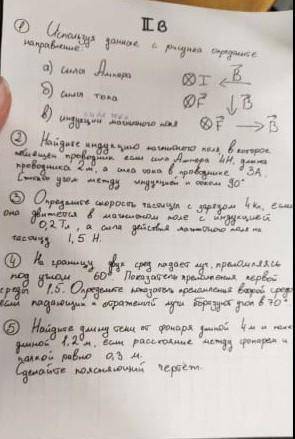 II В
① Используя данные с рисунка определите
направление:
а) сила Ампера ⊗ I ← B
б) сила тока ⊗ F ↓ B
в) индукции магнитного поля ⊗ F → B
② Найдите индукцию магнитного поля, в которое
помещен проводник если сила Ампера 4Н, длина
проводника 2м, а сила тока в проводнике 3А,
угол между индукцией и током 90°
③ Определите скорость частицы с зарядом 4 если
она движется в магнитном поле с индукцией
0,2 Тл, а сила действия магнитного поля на
частицу 1,5 Н.
④ На границу двух сред падает луч, преломляясь
под углом 60° Показатель преломления первой
среды 1.5. Определите показатель преломления второй среды
если падающий и отраженный лучи образуют угол в 70°
⑤ Найдите длину тени от фонаря длиной 4 м и палки
длиной 1.2 м, если расстояние между фонарем и
палкой равно 0,3 м.
Сделайте поясняющий чертёж.